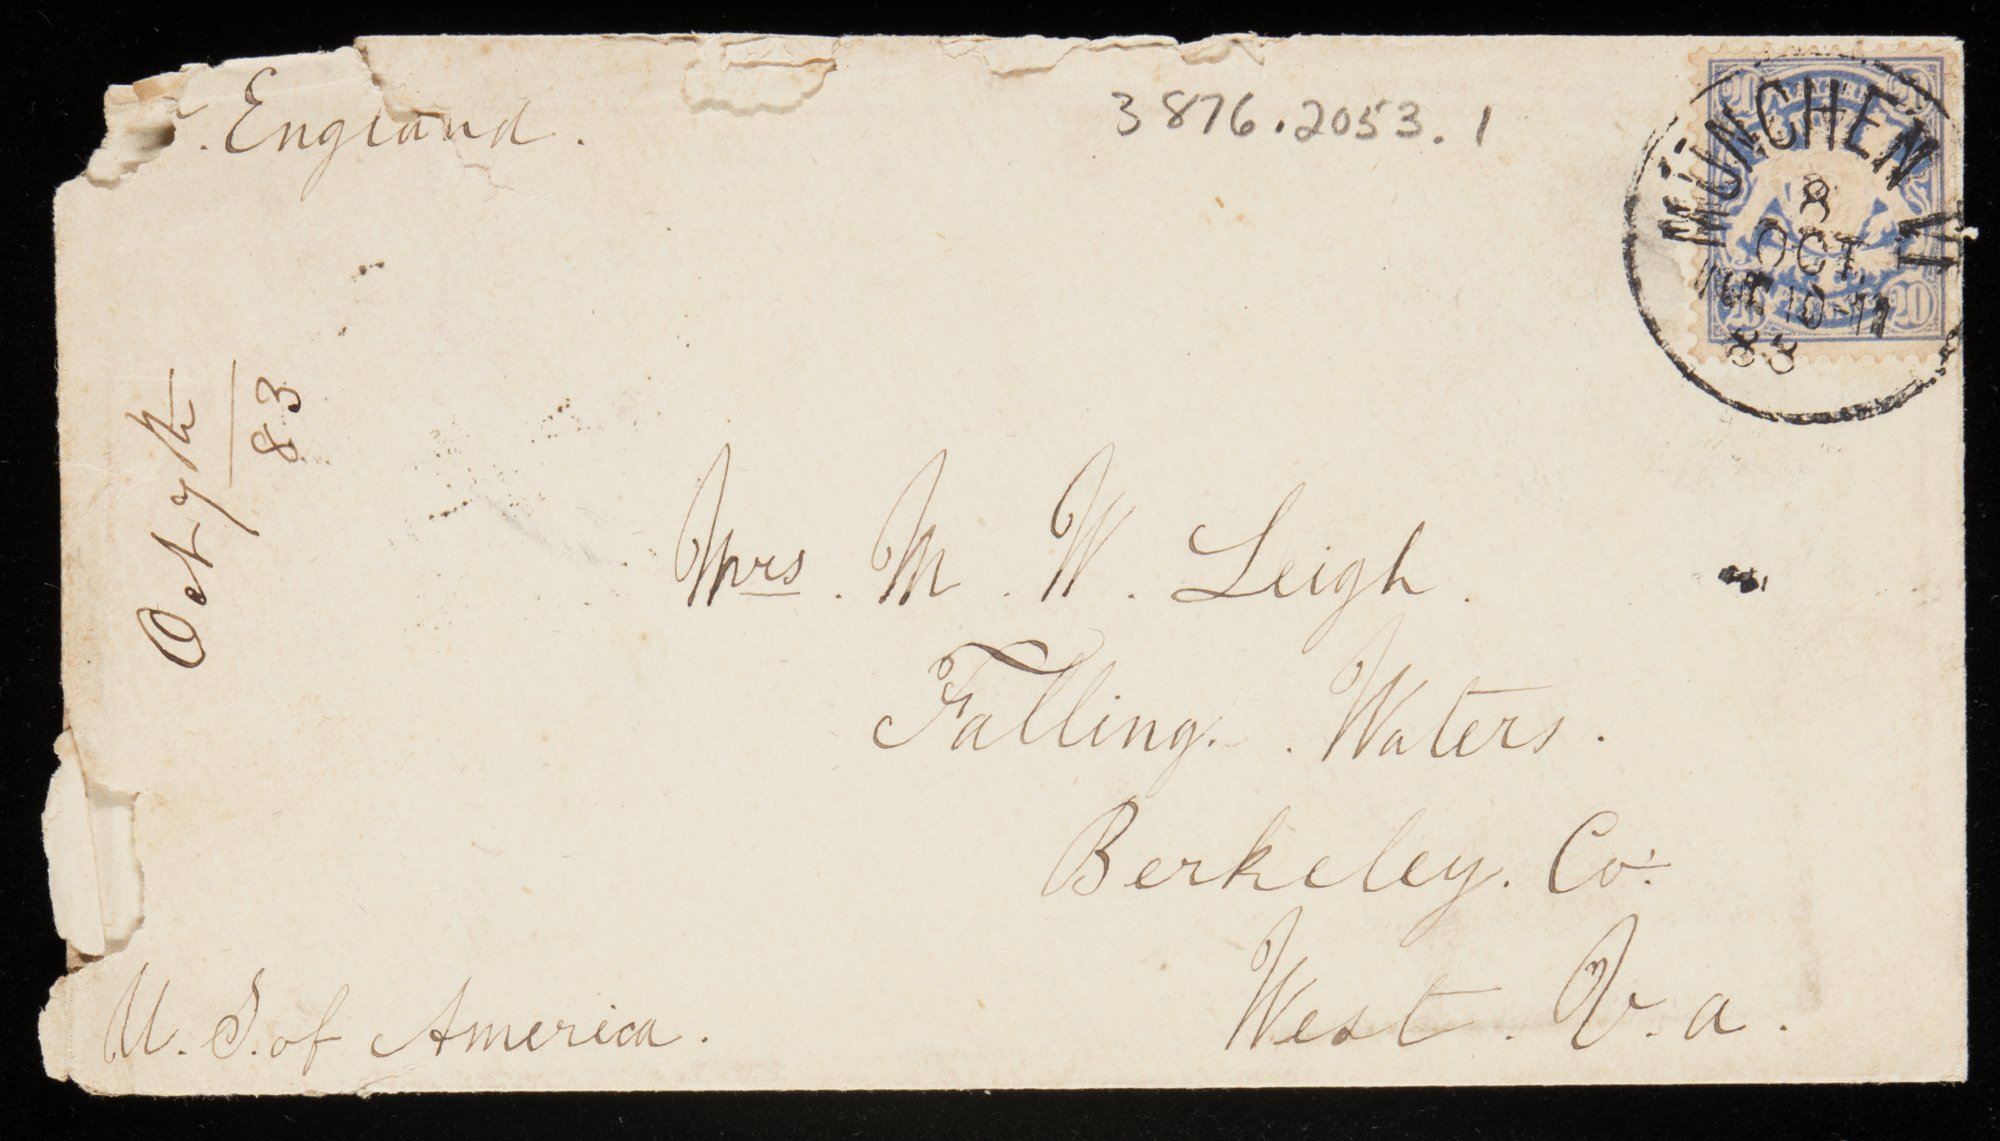 England.
3876.2053.1
MÜNCHEN VI
8
OCT.
10-11
83
20
Oct 7th
83
Mrs. M. W. Leigh.
Falling. Waters.
Berkeley. Co.
West. V.a.
U. S. of America.